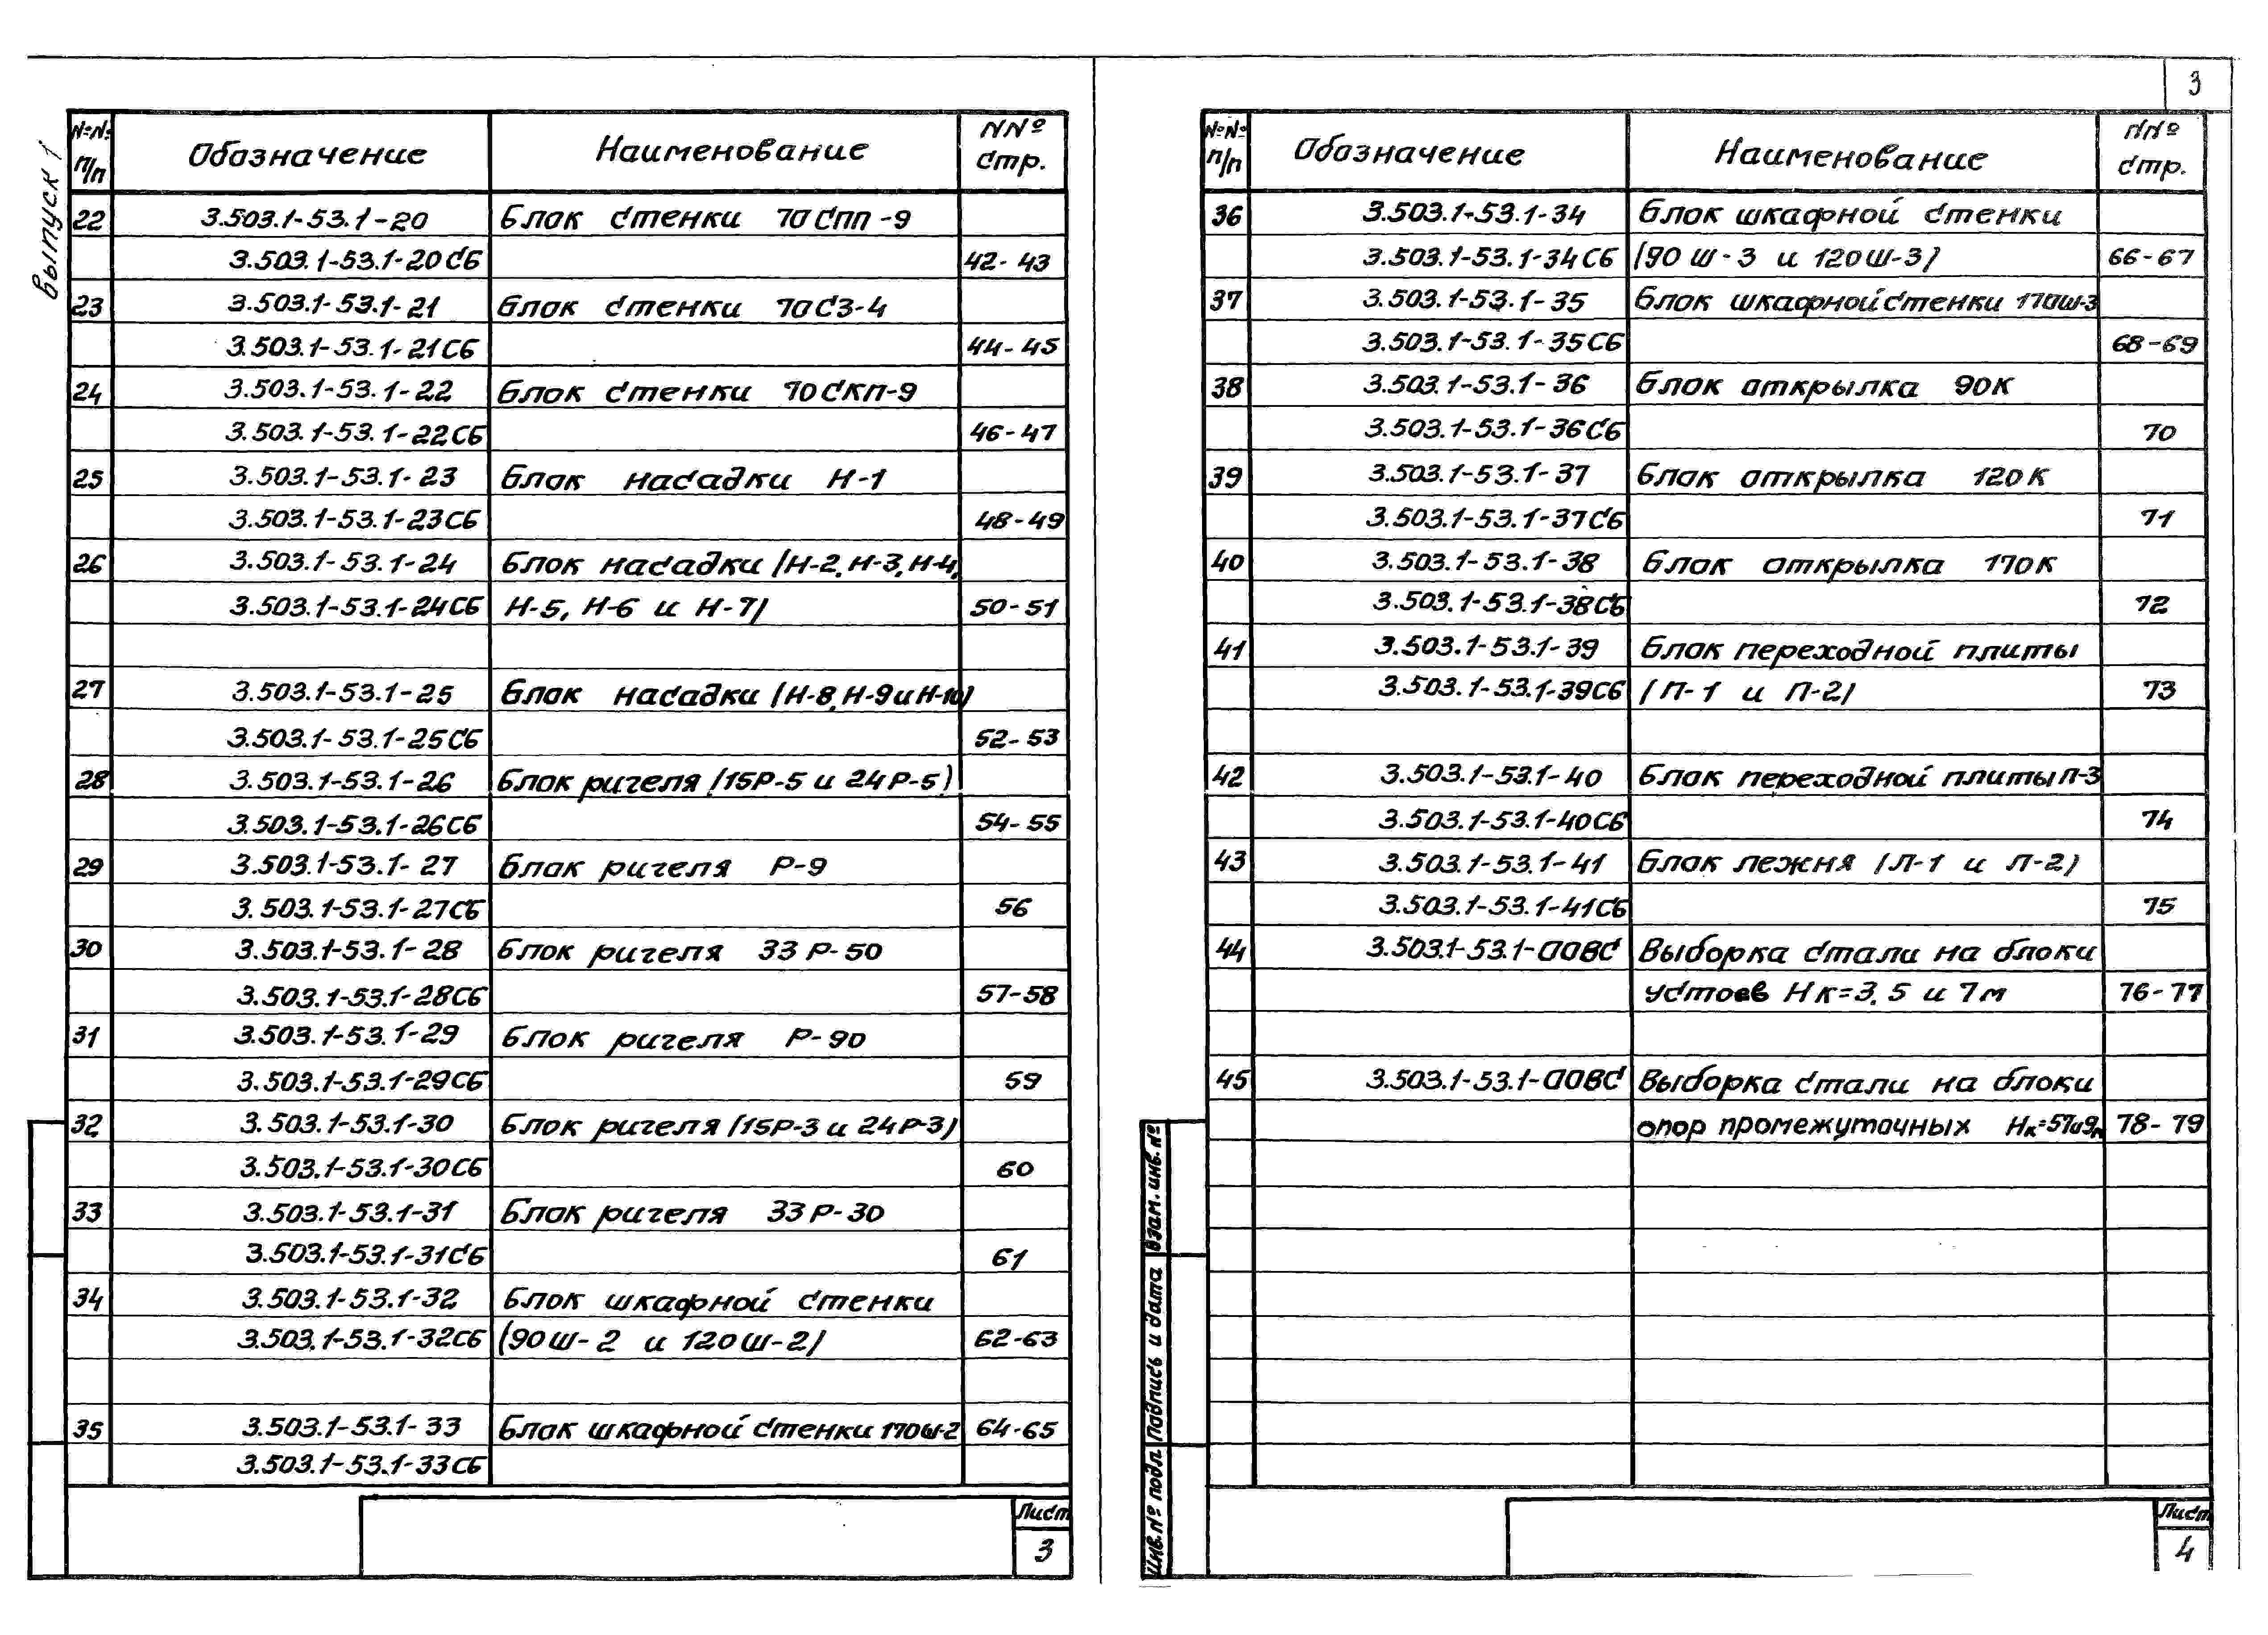 3
Выпуск 1
№№ п/п Обозначение Наименование NNº стр.
22 3.503.1-53.1-20 Блок стенки 70СПП-9
3.503.1-53.1-20СБ 42-43
23 3.503.1-53.1-21 Блок стенки 70С3-4
3.503.1-53.1-21СБ 44-45
24 3.503.1-53.1-22 Блок стенки 70СКП-9
3.503.1-53.1-22СБ 46-47
25 3.503.1-53.1-23 Блок насадки Н-1
3.503.1-53.1-23СБ 48-49
26 3.503.1-53.1-24 Блок насадки (Н-2, Н-3, Н-4,
3.503.1-53.1-24СБ Н-5, Н-6 и Н-7) 50-51
27 3.503.1-53.1-25 Блок насадки (Н-8, Н-9 и Н-10)
3.503.1-53.1-25СБ 52-53
28 3.503.1-53.1-26 Блок ригеля (15Р-5 и 24Р-5)
3.503.1-53.1-26СБ 54-55
29 3.503.1-53.1-27 Блок ригеля Р-9
3.503.1-53.1-27СБ 56
30 3.503.1-53.1-28 Блок ригеля 33Р-50
3.503.1-53.1-28СБ 57-58
31 3.503.1-53.1-29 Блок ригеля Р-90
3.503.1-53.1-29СБ 59
32 3.503.1-53.1-30 Блок ригеля (15Р-3 и 24Р-3)
3.503.1-53.1-30СБ 60
33 3.503.1-53.1-31 Блок ригеля 33Р-30
3.503.1-53.1-31СБ 61
34 3.503.1-53.1-32 Блок шкафной стенки
3.503.1-53.1-32СБ (90Ш-2 и 120Ш-2) 62-63
35 3.503.1-53.1-33 Блок шкафной стенки 170Ш-2 64-65
3.503.1-53.1-33СБ
Лист
3
№№ п/п Обозначение Наименование NNº стр.
36 3.503.1-53.1-34 Блок шкафной стенки
3.503.1-53.1-34СБ (90Ш-3 и 120Ш-3) 66-67
37 3.503.1-53.1-35 Блок шкафной стенки 170Ш-3
3.503.1-53.1-35СБ 68-69
38 3.503.1-53.1-36 Блок открылка 90К
3.503.1-53.1-36СБ 70
39 3.503.1-53.1-37 Блок открылка 120К
3.503.1-53.1-37СБ 71
40 3.503.1-53.1-38 Блок открылка 170К
3.503.1-53.1-38СБ 72
41 3.503.1-53.1-39 Блок переходной плиты
3.503.1-53.1-39СБ (П-1 и П-2) 73
42 3.503.1-53.1-40 Блок переходной плиты П-3
3.503.1-53.1-40СБ 74
43 3.503.1-53.1-41 Блок лежня (Л-1 и Л-2)
3.503.1-53.1-41СБ 75
44 3.503.1-53.1-00ВС Выборка стали на блоки
устоев Нк=3,5 и 7м 76-77
45 3.503.1-53.1-00ВС Выборка стали на блоки
опор промежуточных Нк=57и9м 78-79
Взам. инв. №
Подпись и дата
Инв. № подл
Лист
4